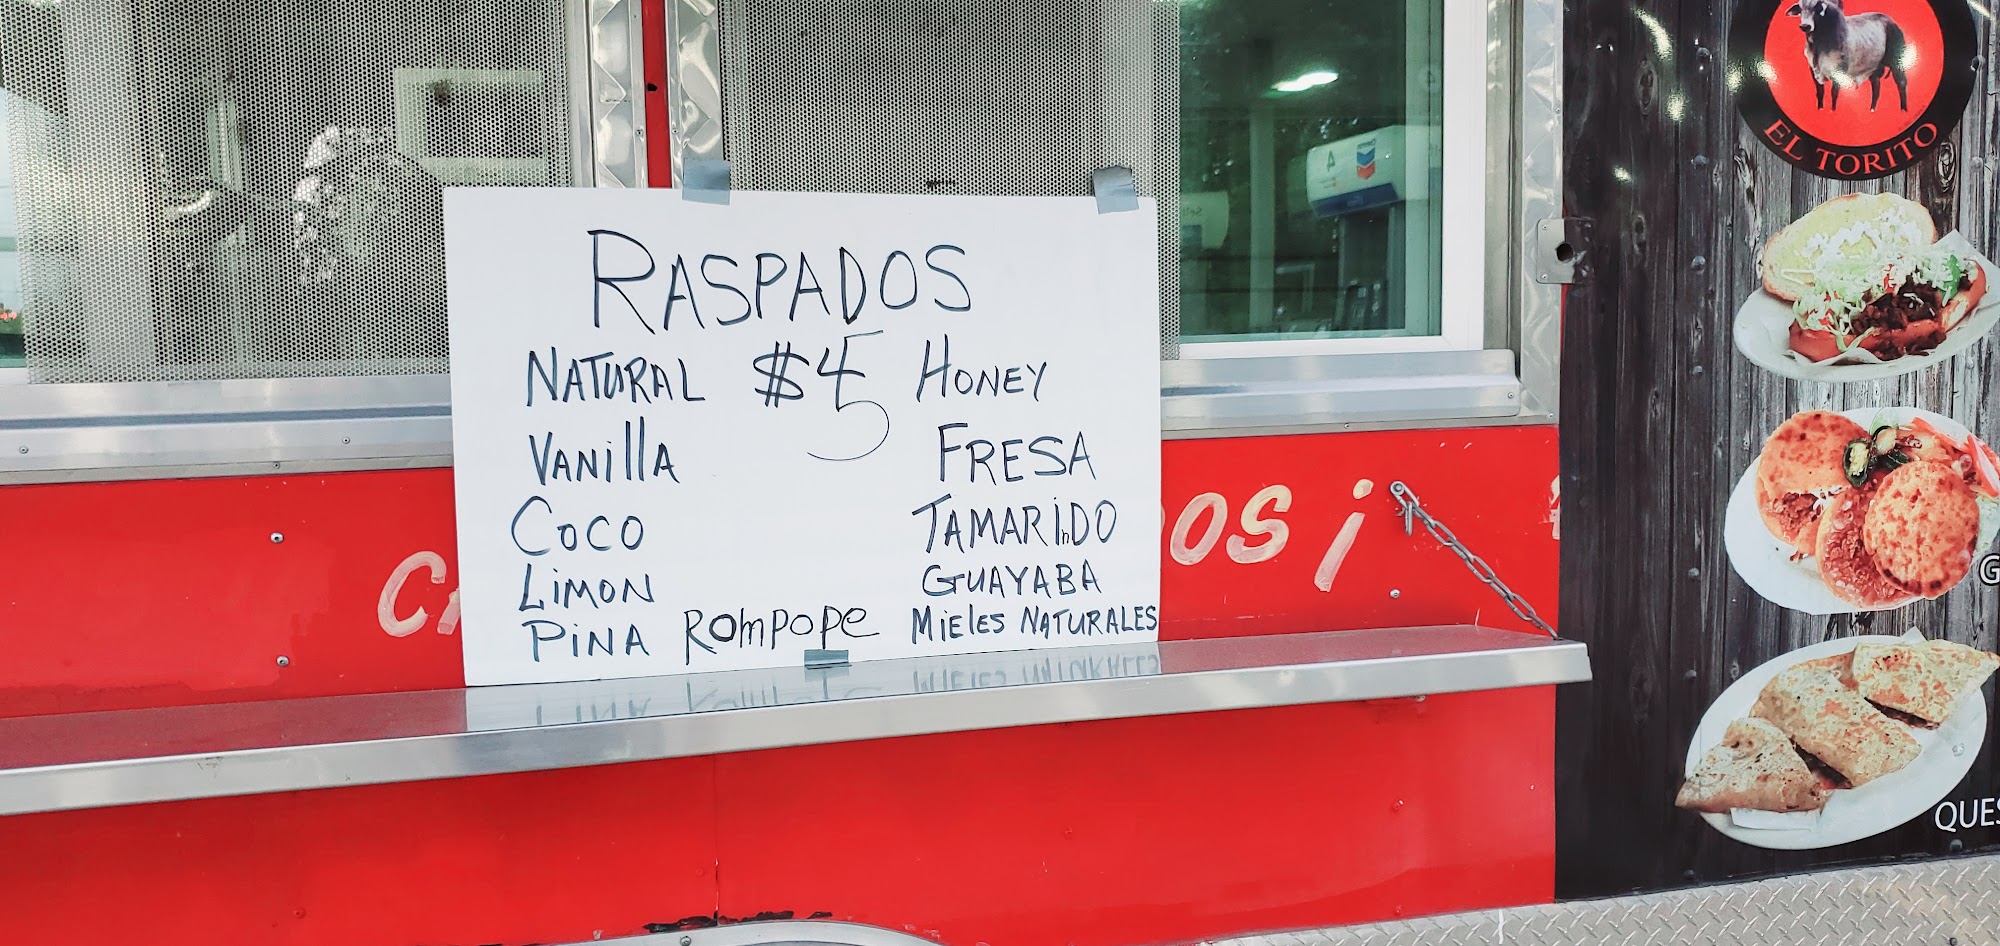 RASPADOS
NATURAL $5 HONEY
VANillA FRESA
COCO TAMARiNDO
LiMON GUAYABA
PiNA ROMPOPE MiELES NATURALES
EL TORITO
4